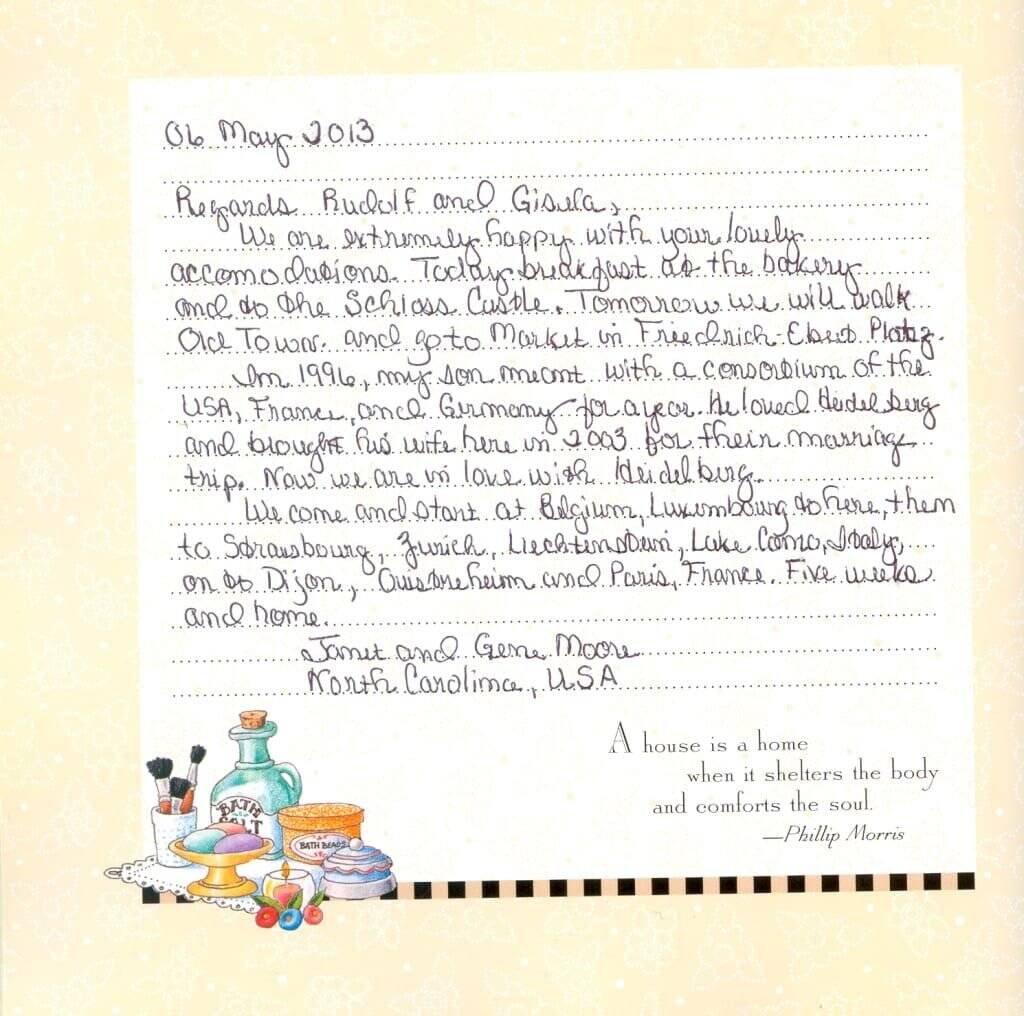 06 May 2013
Regards Rudolf and Gisula,
We are extremely happy with your lovely
accomodations. Today breakfast at the bakery
and to the Schloss Castle. Tomorrow we will walk
Old Town. and go to Market in Friedrich-Ebert Platz.
In 1996, my son meant with a consortium of the
USA, France, and Germany for a year. He loved Heidelberg
and brought his wife here in 2003 for their marriage
trip. Now we are in love with Heidelberg.
We come and start at Belgium, Luxembourg to here, them
to Strausbourg, Zurich, Liechtenstein, Lake Como, Italy,
on to Dijon, Ouistreheim and Paris, France. Five weeks
and home.
Janet and Gene Moore
North Carolina, USA
A house is a home
when it shelters the body
and comforts the soul.
—Phillip Morris
BATH
SALT
BATH BEADS